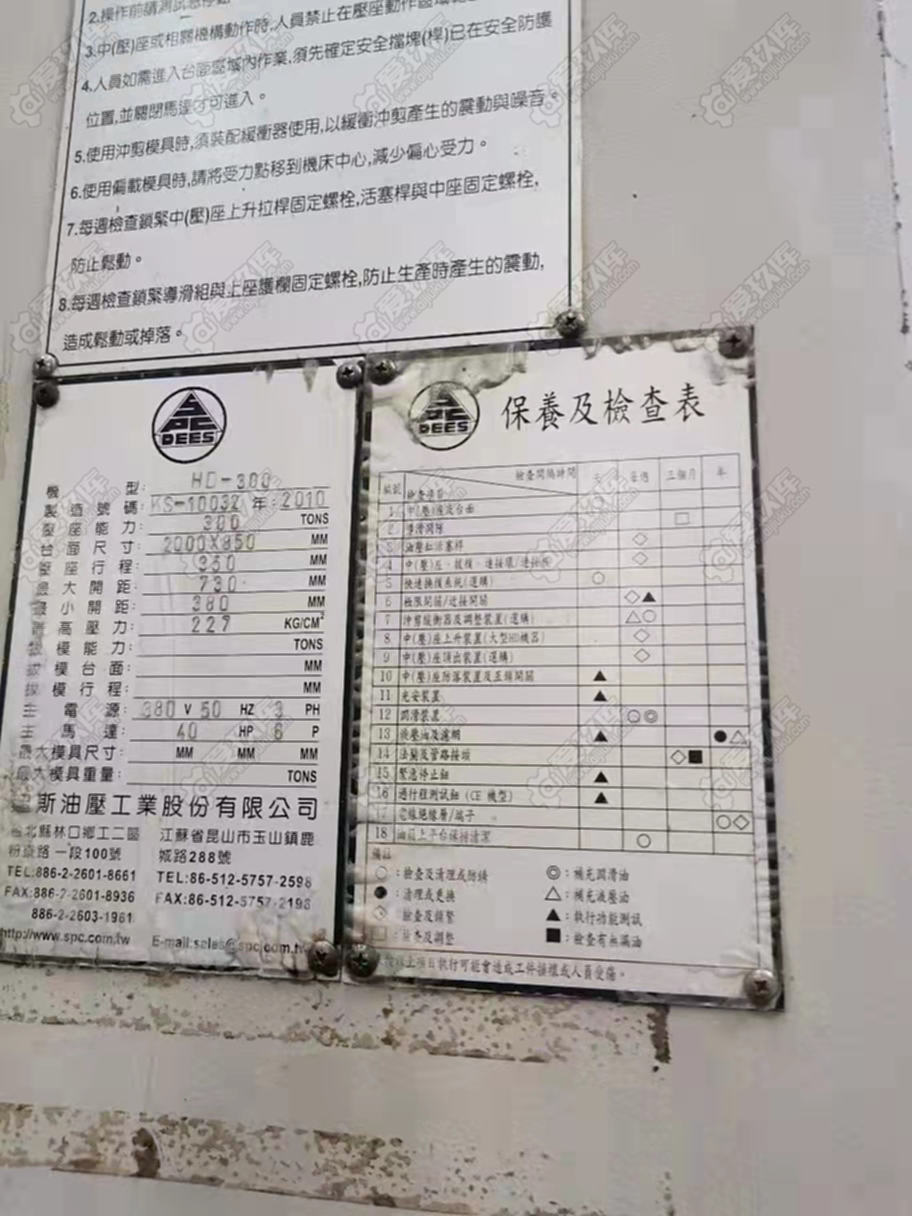 2.操作前請測試急停鈕
3.中(壓)座或相關機構動作時,人員禁止在壓座動作區域
4.人員如需進入台面區域內作業,須先確定安全擋塊(桿)已在安全防護
位置,並關閉馬達才可進入。
5.使用沖剪模具時,須裝配緩衝器使用,以緩衝沖剪產生的震動與噪音。
6.使用偏載模具時,請將受力點移到機床中心,減少偏心受力。
7.每週檢查鎖緊中(壓)座上升拉桿固定螺栓,活塞桿與中座固定螺栓,
防止鬆動。
8.每週檢查鎖緊導滑組與上座護欄固定螺栓,防止生產時產生的震動,
造成鬆動或掉落。
SPC
DEES
機型: HD-300
製造號碼: KS-10032 年: 2010
壓座能力: 300 TONS
台面尺寸: 2000X850 MM
壓座行程: 350 MM
最大開距: 730 MM
最小開距: 380 MM
最高壓力: 227 KG/CM²
模能力: TONS
模台面: MM
模行程: MM
主電源: 380 V 50 HZ 3 PH
主馬達: 40 HP 6 P
最大模具尺寸: MM MM MM
最大模具重量: TONS
斯油壓工業股份有限公司
台北縣林口鄉工二區 江蘇省昆山市玉山鎮鹿
粉寮路一段100號 城路288號
TEL:886-2-2601-8661 TEL:86-512-5757-2598
FAX:886-2-2601-8936 FAX:86-512-5757-2198
886-2-2603-1961
http://www.spc.com.tw E-mail:sales@spc.com.tw
SPC
DEES
保養及檢查表
編號 檢查項目 檢查間隔時間 天 每週 三個月 年
1 中(壓)座及台面
2 導滑間隙 □
3 油壓缸活塞桿 ◇
4 中(壓)座、拔模、連接環/連接 ◇
5 快速換模系統(選購) ○
6 極限開關/近接開關 ◇▲
7 沖剪緩衝器及調整裝置(選購) △○
8 中(壓)座上升裝置(大型HD機器) ◇
9 中(壓)座頂出裝置(選購) ◇
10 中(壓)座防落裝置及互鎖開關 ▲
11 光安裝置 ▲
12 潤滑裝置 ○◎
13 液壓油及濾網 ▲ ●△
14 法蘭及管路接頭 ◇■
15 緊急停止鈕 ▲
16 過行程測試鈕(CE 機型) ▲
17 電線絕緣層/端子 ○◇
18 油箱上平台保持清潔 ○
備註
○:檢查及清理或防銹 ◎:補充潤滑油
●:清理或更換 △:補充液壓油
◇:檢查及鎖緊 ▲:執行功能測試
□:檢查及調整 ■:檢查有無漏油
以上項目執行可能會造成工件損壞或人員受傷。